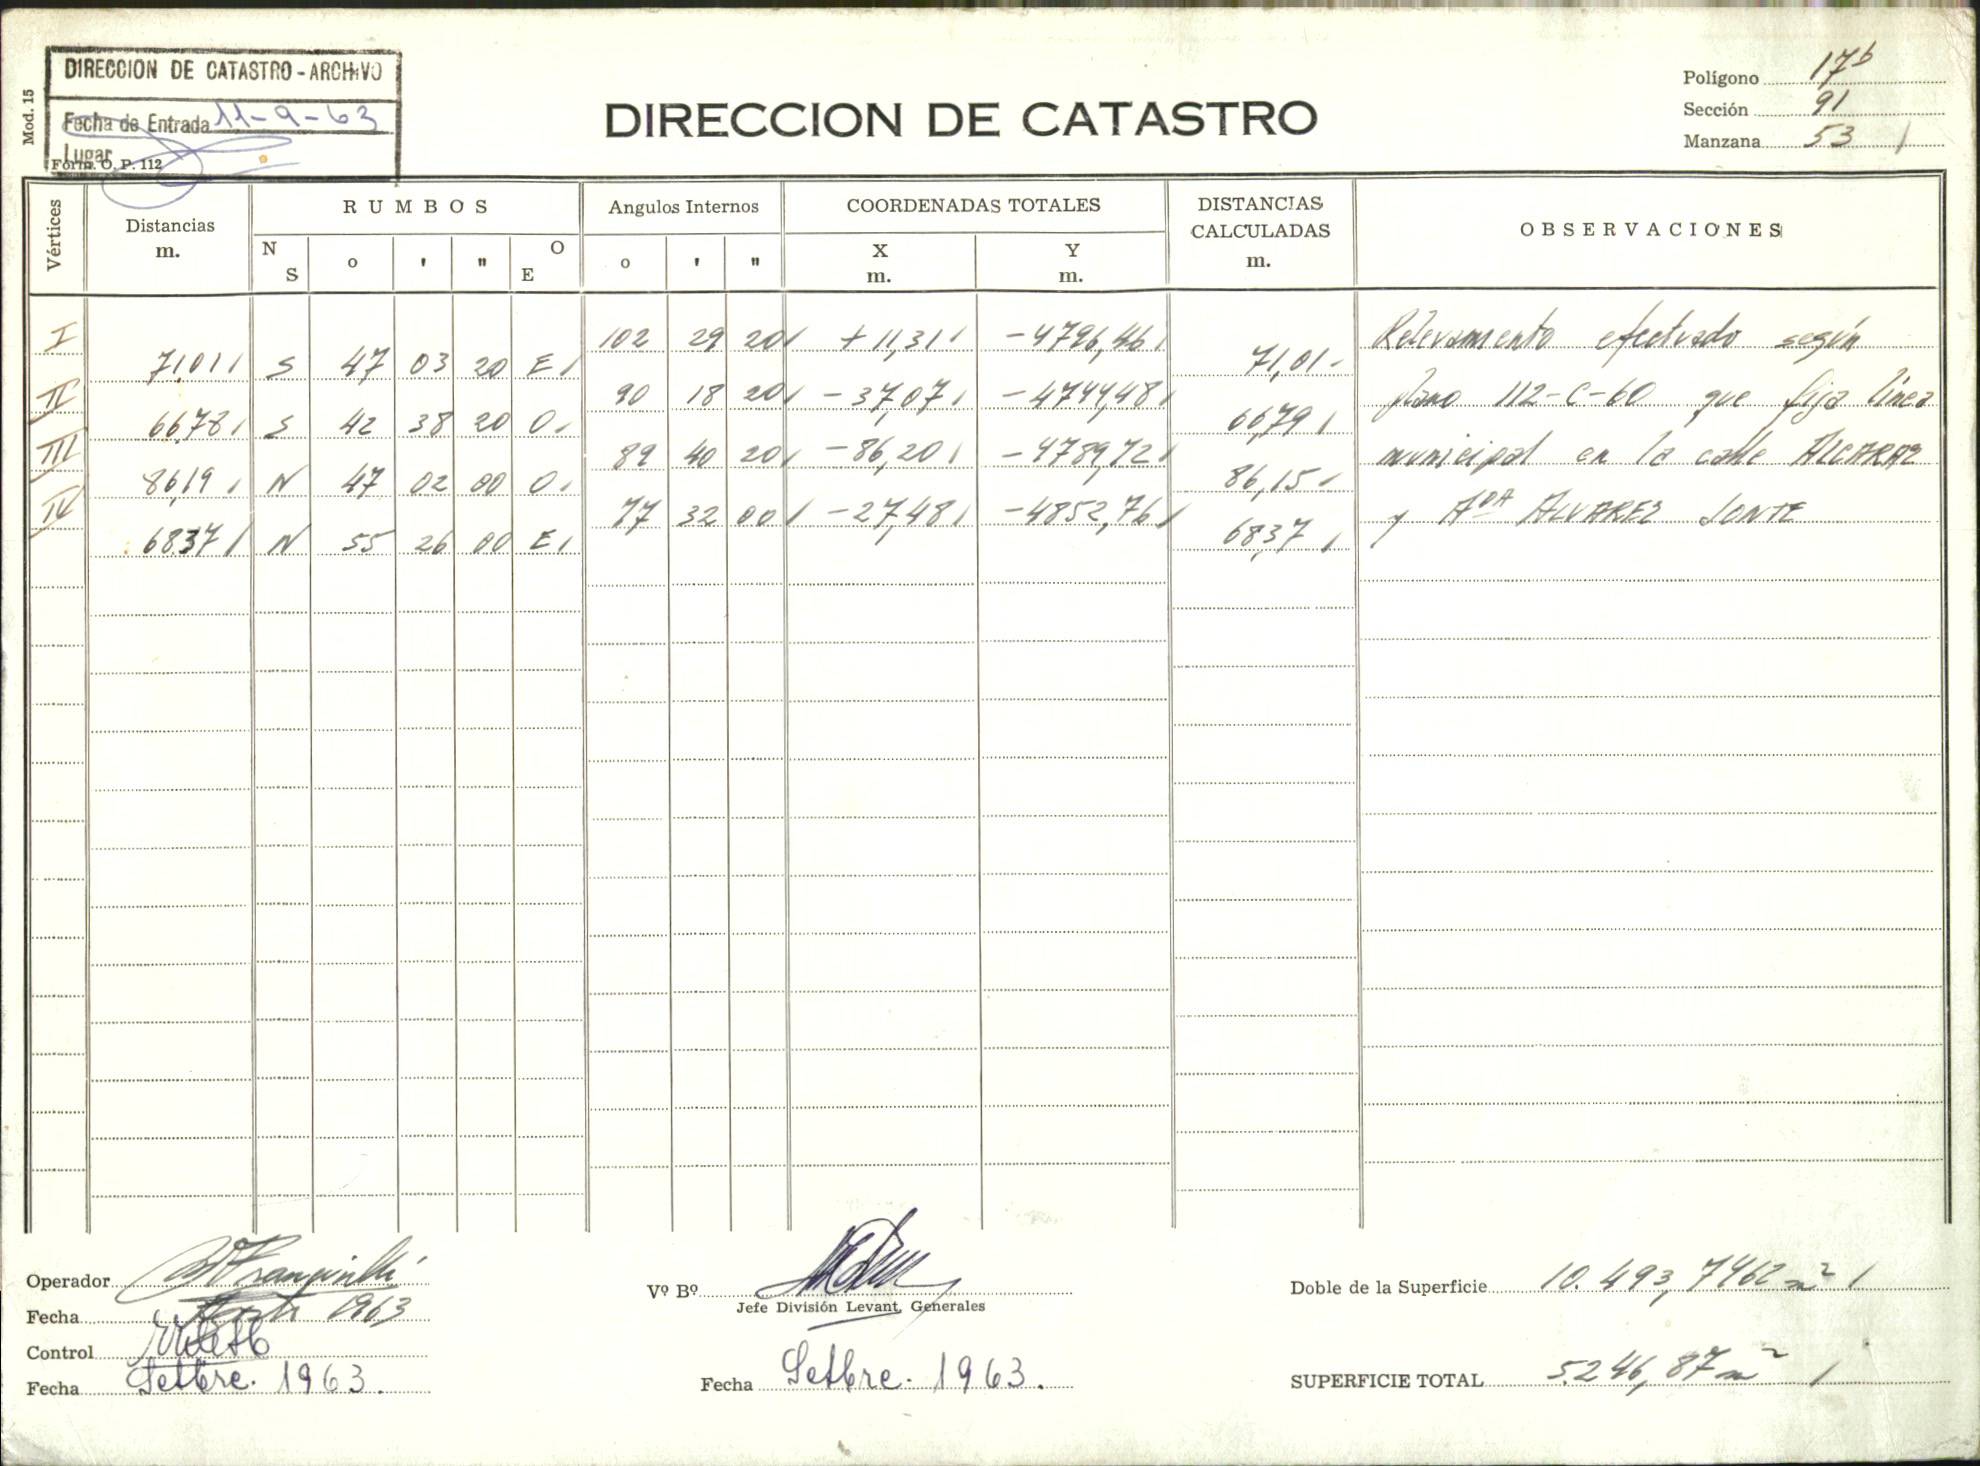 DIRECCION DE CATASTRO - ARCHIVO
Fecha de Entrada 11-9-63
Lugar
Form. O. P. 112
Mod. 15
DIRECCION DE CATASTRO
Polígono 17b
Sección 91
Manzana 53
Vértices
Distancias m.
RUMBOS
N S o ' " O E
Angulos Internos
o ' "
COORDENADAS TOTALES
X m. Y m.
DISTANCIAS CALCULADAS m.
OBSERVACIONES
I 102 29 20 +11,31 -4796,46 Relevamiento efectuado según
71,01 S 47 03 20 E 71,01
II 90 18 20 -37,07 -4744,48 plano 112-C-60 que fija línea
66,78 S 42 38 20 O 66,79
III 89 40 20 -86,20 -4789,72 municipal en la calle ALCARAZ
86,19 N 47 02 00 O 86,15
IV 77 32 00 -27,48 -4852,76 y Ada ALVAREZ JONTE
68,37 N 55 26 00 E 68,37
Operador
Fecha 1963
Control
Fecha Setbre. 1963.
Vº Bº
Jefe División Levant. Generales
Fecha Setbre. 1963.
Doble de la Superficie 10.493,7462 m2
SUPERFICIE TOTAL 5.246,87 m2